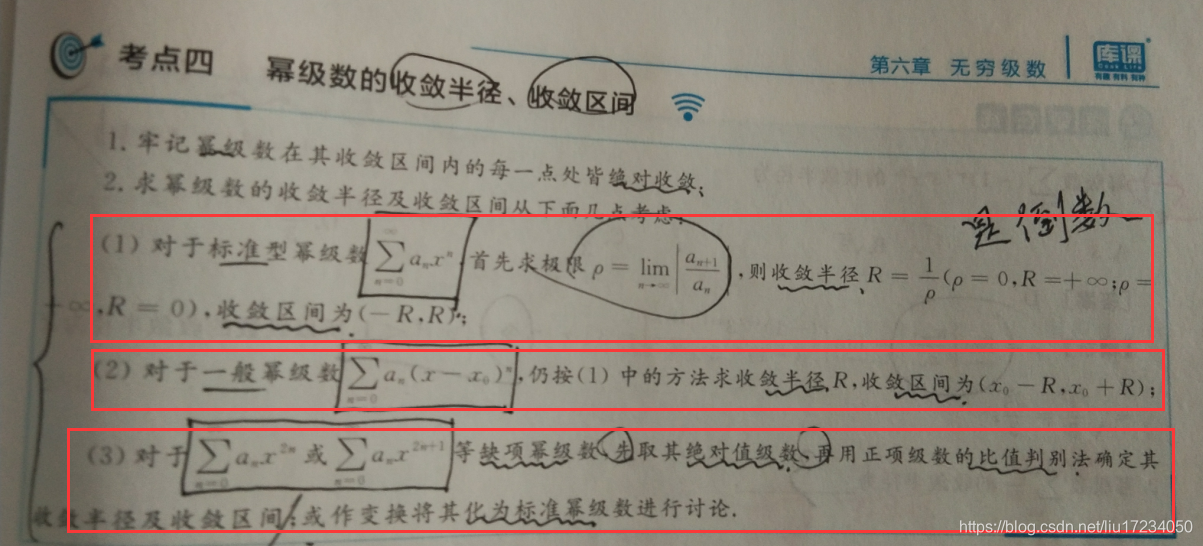 考点四 幂级数的收敛半径、收敛区间
第六章 无穷级数
库课
有趣 有料 有种
1. 牢记幂级数在其收敛区间内的每一点处皆绝对收敛;
2. 求幂级数的收敛半径及收敛区间从下面几点考虑:
是倒数
(1) 对于标准型幂级数 ∑_{n=0}^{∞} a_n x^n, 首先求极限 ρ = lim_{n→∞} |a_{n+1}/a_n|, 则收敛半径 R = 1/ρ (ρ = 0, R = +∞; ρ =
+∞, R = 0), 收敛区间为 (-R, R);
(2) 对于一般幂级数 ∑_{n=0}^{∞} a_n (x - x_0)^n, 仍按(1) 中的方法求收敛半径 R, 收敛区间为 (x_0 - R, x_0 + R);
(3) 对于 ∑_{n=0}^{∞} a_n x^{2n} 或 ∑_{n=0}^{∞} a_n x^{2n+1} 等缺项幂级数, 先取其绝对值级数, 再用正项级数的比值判别法确定其
收敛半径及收敛区间; 或作变换将其化为标准幂级数进行讨论.
https://blog.csdn.net/liu17234050